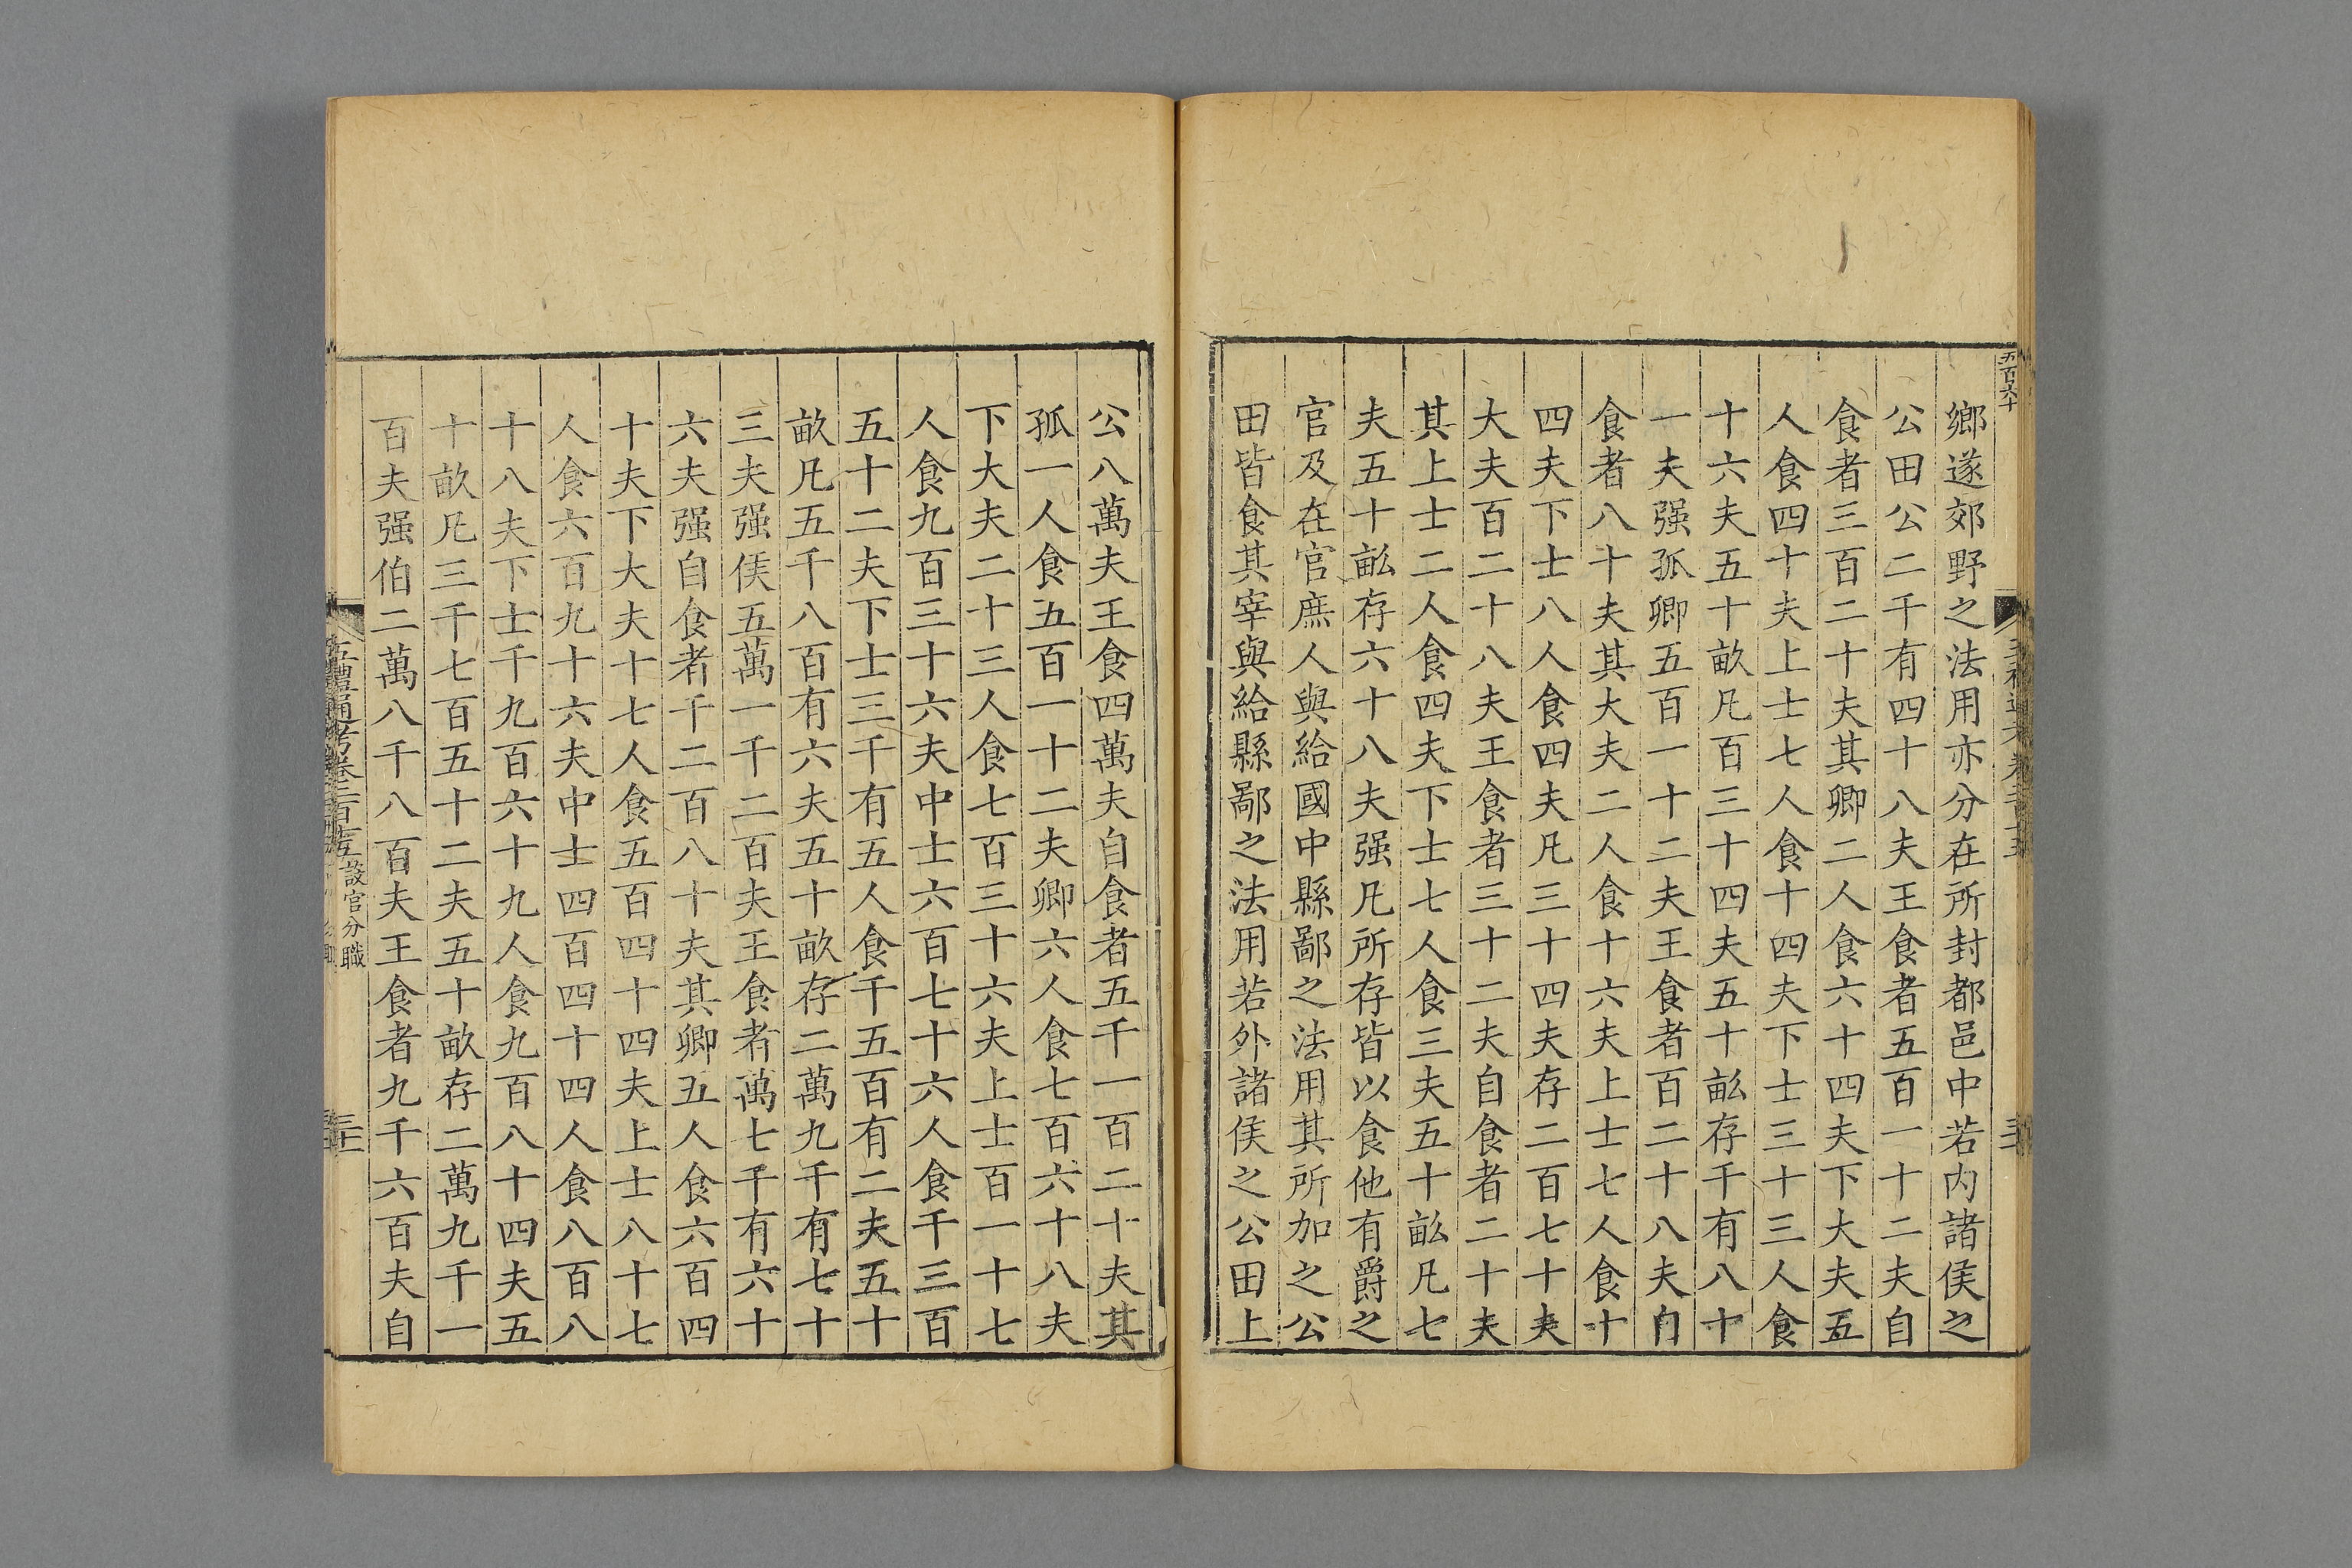 五百六十
鄉遂郊野之法用亦分在所封都邑中若内諸侯之
公田公二千有四十八夫王食者五百一十二夫自
食者三百二十夫其卿二人食六十四夫下大夫五
人食四十夫上士七人食十四夫下士三十三人食
十六夫五十畝凡百三十四夫五十畝存千有八十
一夫强孤卿五百一十二夫王食者百二十八夫自
食者八十夫其大夫二人食十六夫上士七人食十
四夫下士八人食四夫凡三十四夫存二百七十夫
大夫百二十八夫王食者三十二夫自食者二十夫
其上士二人食四夫下士七人食三夫五十畝凡七
夫五十畝存六十八夫强凡所存皆以食他有爵之
官及在官庶人與給國中縣鄙之法用其所加之公
田皆食其宰與給縣鄙之法用若外諸侯之公田上
公八萬夫王食四萬夫自食者五千一百二十夫其
孤一人食五百一十二夫卿六人食七百六十八夫
下大夫二十三人食七百三十六夫上士百一十七
人食九百三十六夫中士六百七十六人食千三百
五十二夫下士三千有五人食千五百有二夫五十
畝凡五千八百有六夫五十畝存二萬九千有七十
三夫强侯五萬一千二百夫王食者萬七千有六十
六夫强自食者千二百八十夫其卿五人食六百四
十夫下大夫十七人食五百四十四夫上士八十七
人食六百九十六夫中士四百四十四人食八百八
十八夫下士千九百六十九人食九百八十四夫五
十畝凡三千七百五十二夫五十畝存二萬九千一
百夫强伯二萬八千八百夫王食者九千六百夫自
五禮通考卷二百十五 設官分職 三十一